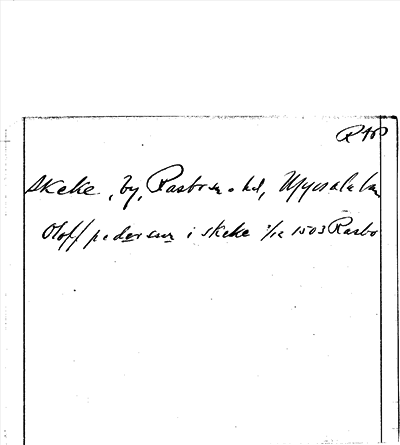 Skeke, by, Rasbo sn o hd, Uppsala län
Oloff pedersson i skeke 1503 Rasbo